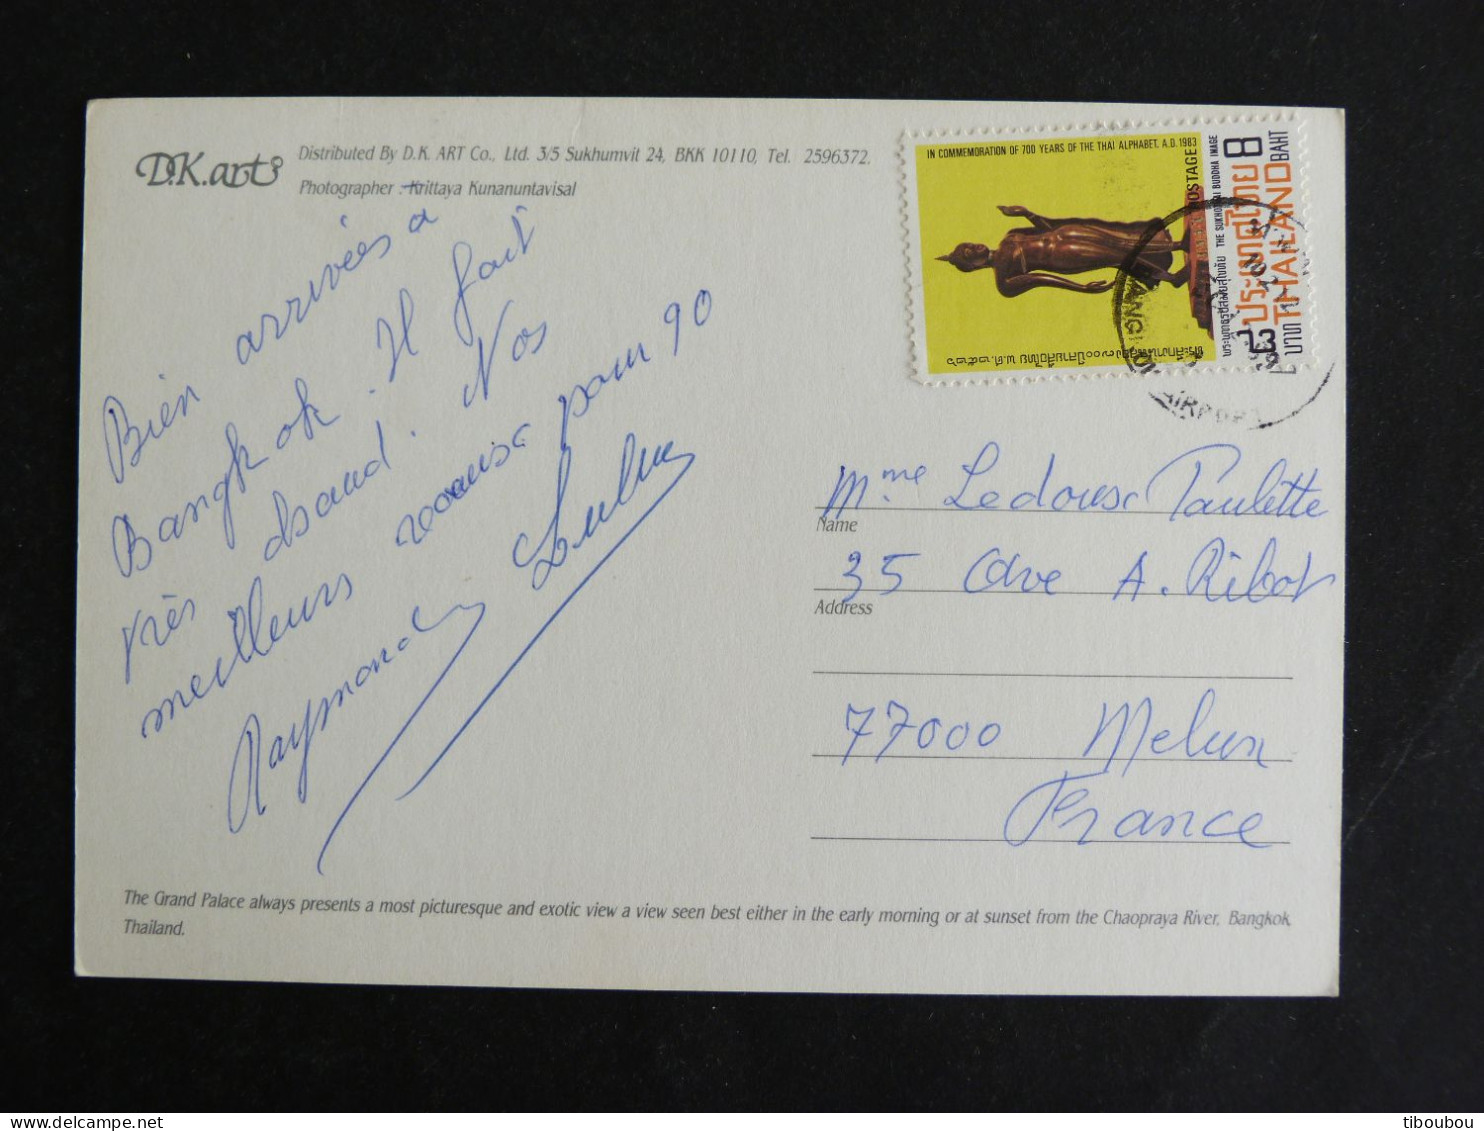 D.K.art
Distributed By D.K. ART Co., Ltd. 3/5 Sukhumvit 24, BKK 10110, Tel. 2596372.
Photographer : Krittaya Kunanuntavisal
Bien arrivées a
Bangkok. Il fait
très chaud. Nos
meilleurs voeux pour 90
Raymond
IN COMMEMORATION OF 700 YEARS OF THE THAI ALPHABET. A.D. 1983
POSTAGE
THE SUKHOTHAI BUDDHA IMAGE
ประเทศไทย 8
THAILAND
บาท BAHT
AIRPORT
Mme Ledoux Paulette
Name
35 Ave A. Ribot
Address
77000 Melun
France
The Grand Palace always presents a most picturesque and exotic view a view seen best either in the early morning or at sunset from the Chaopraya River, Bangkok,
Thailand.
tiboubou